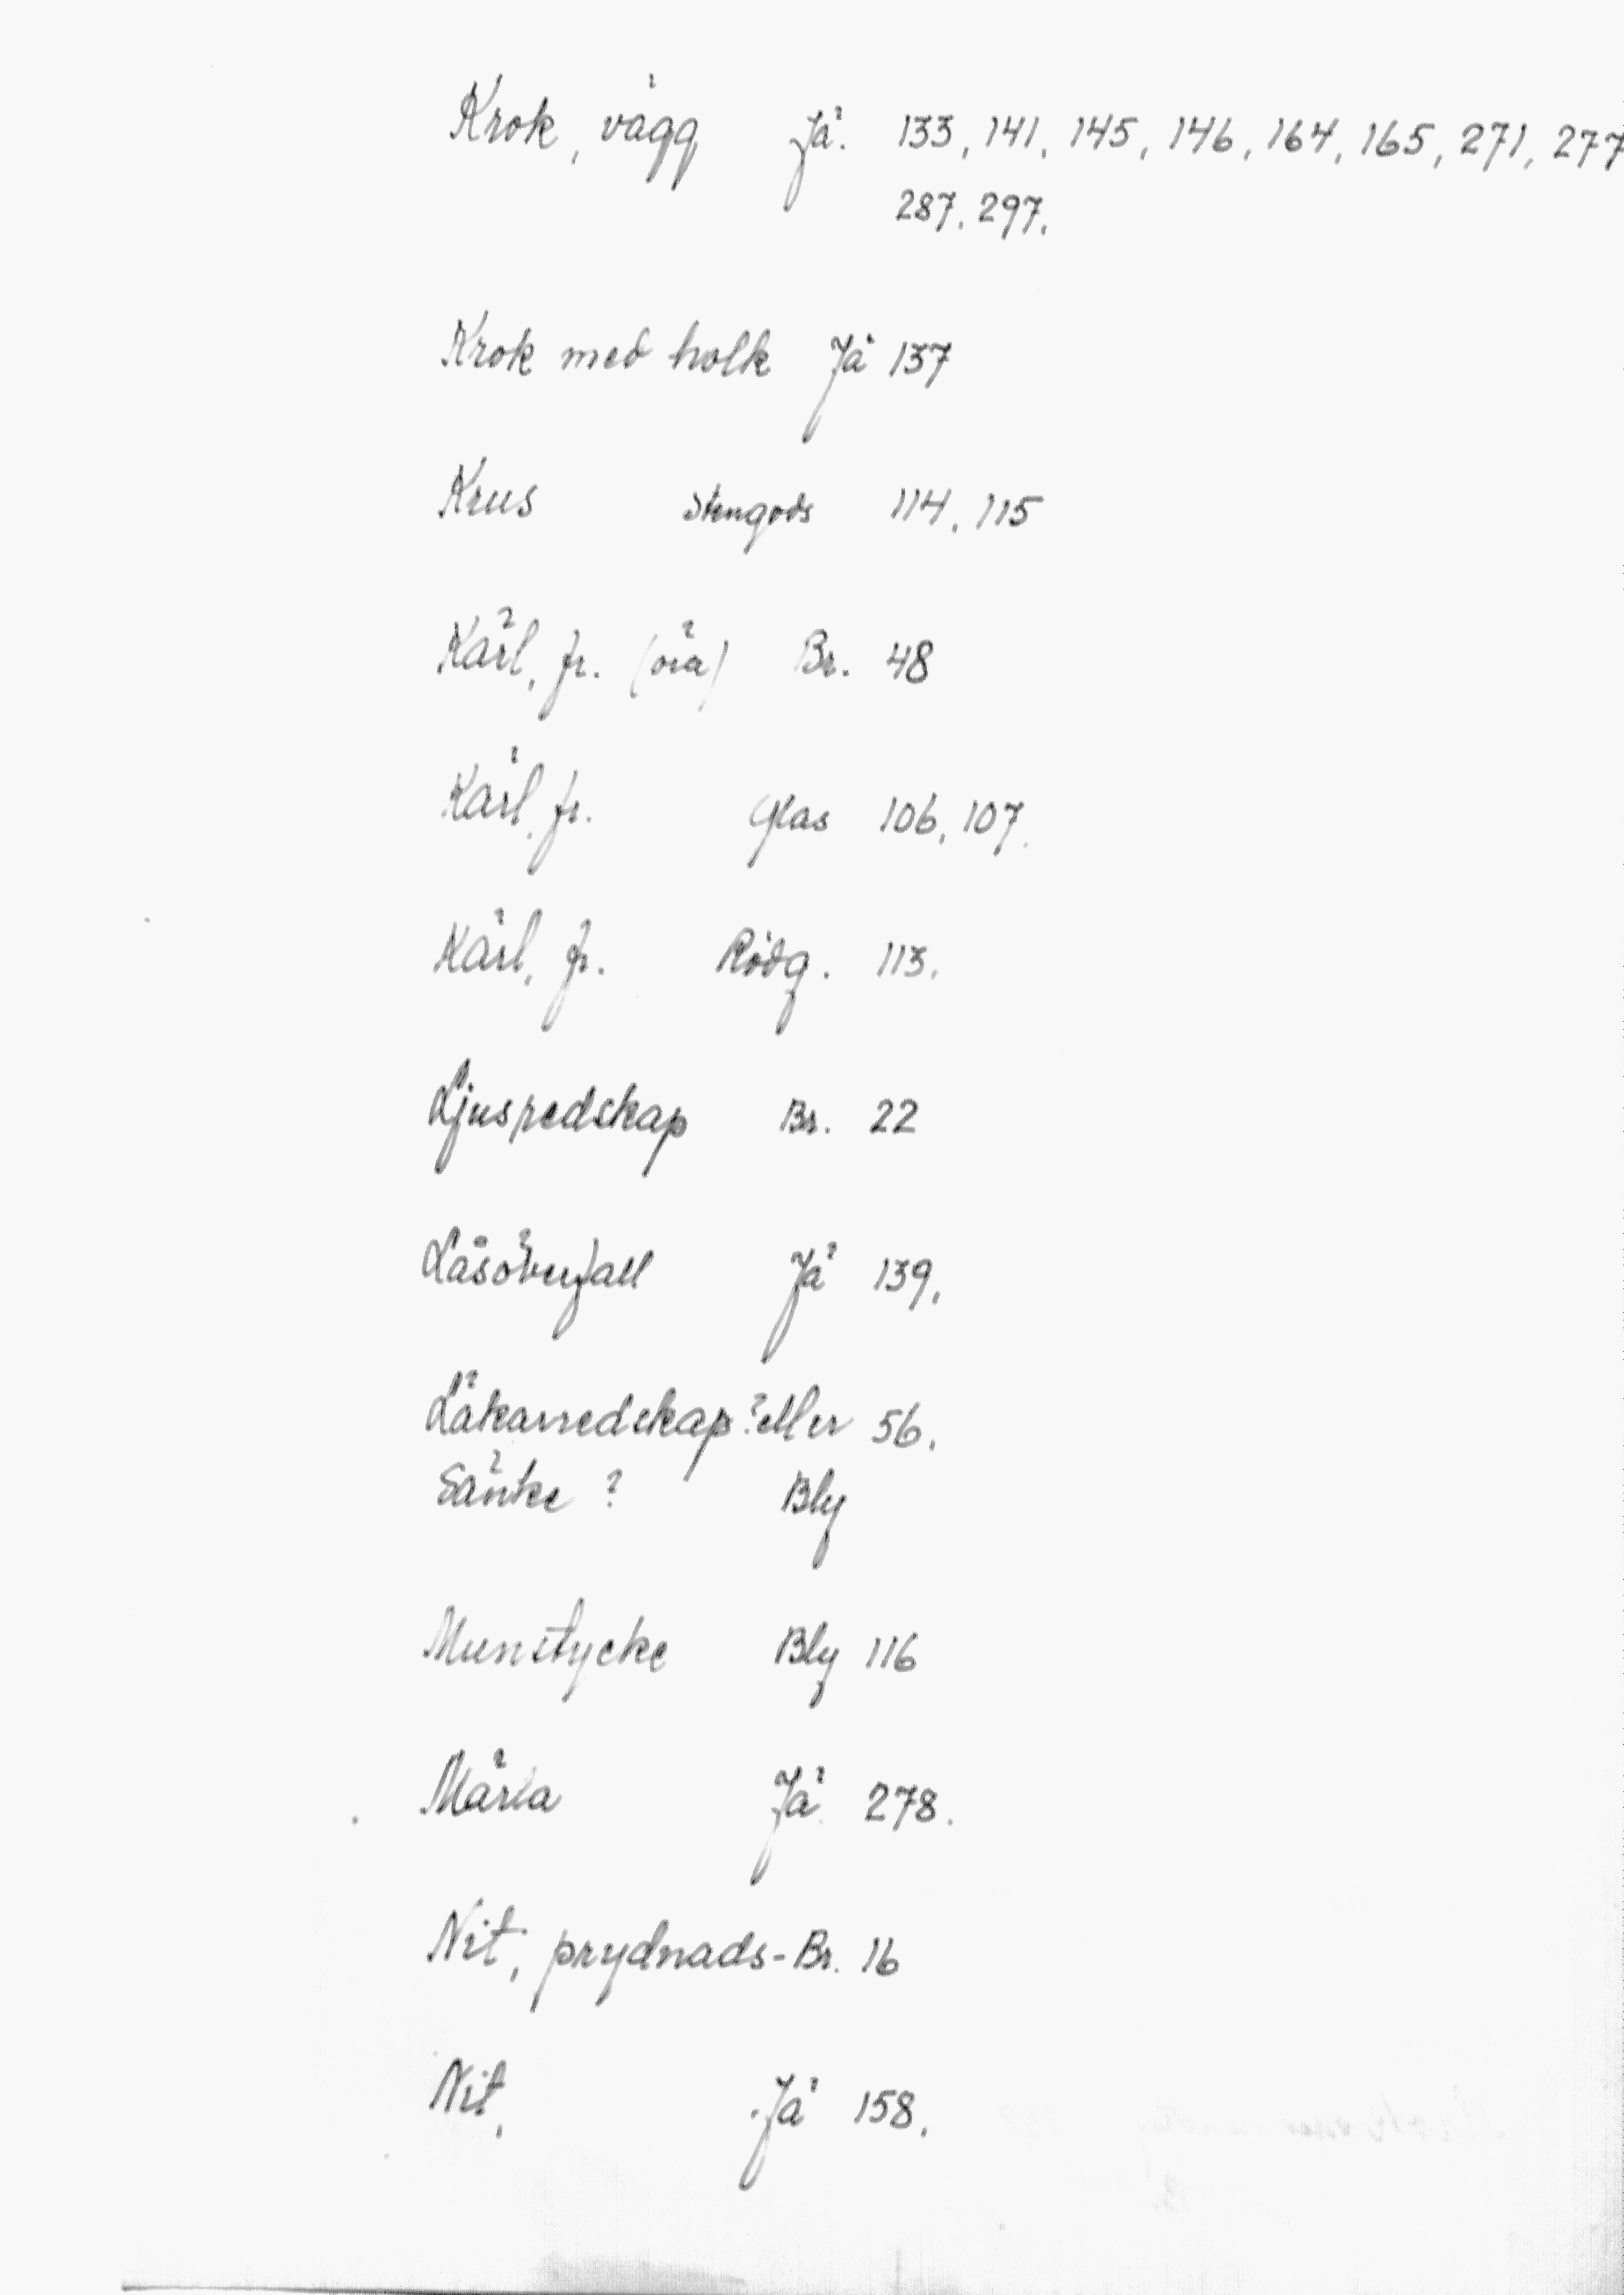 Krok, vägg Jä. 133, 141, 145, 146, 164, 165, 271, 277
287, 297.
Krok med holk Jä 137
Krus Stengods 114, 115
Kärl, fr. (öra) Br. 48
Kärl, fr. Glas 106, 107.
Kärl, fr. Rödg. 113.
Ljusredskap Br. 22
Låsöverfall Jä 139.
Läkarredskap? eller 56.
Sänke ? Bly
Munstycke Bly 116
Märla Jä. 278.
Nit, prydnads- Br. 16
Nit, Jä 158.